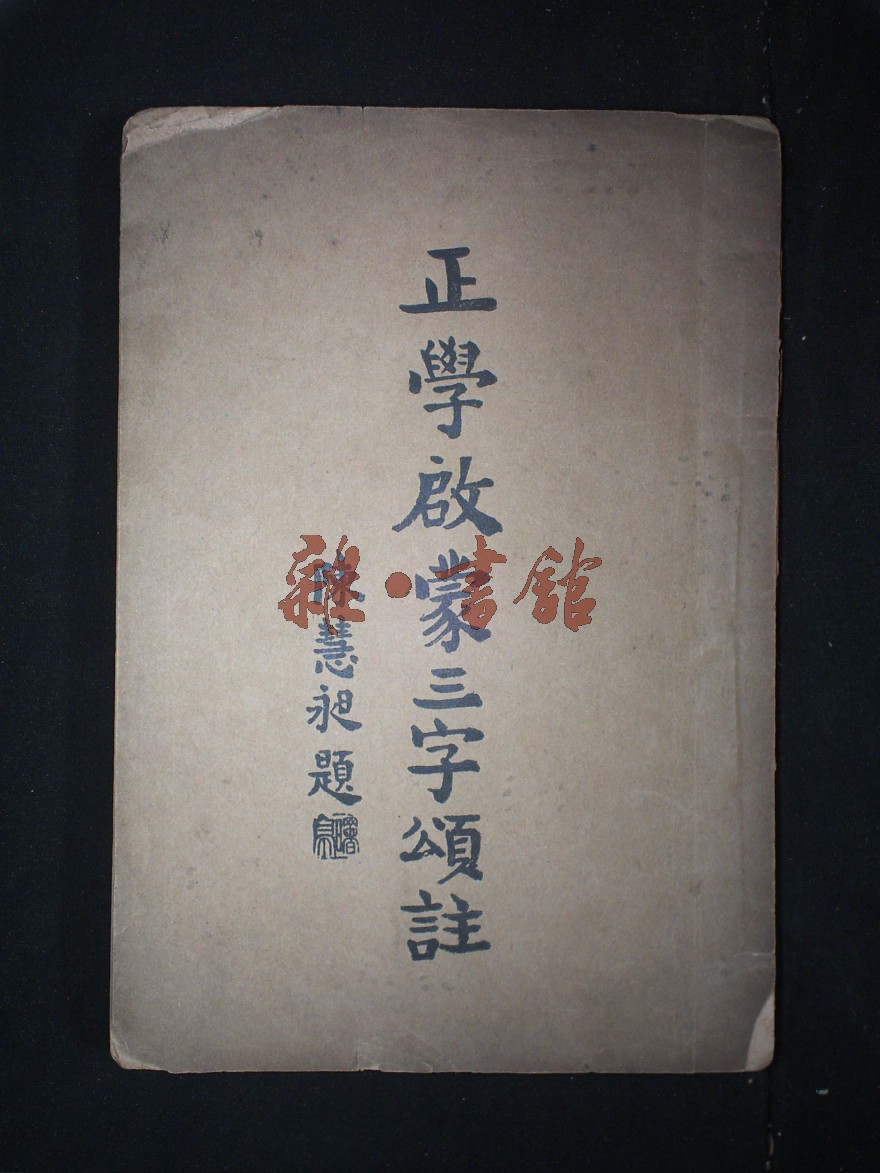 正學啟蒙三字頌註
陳慧昶題
雜·書館